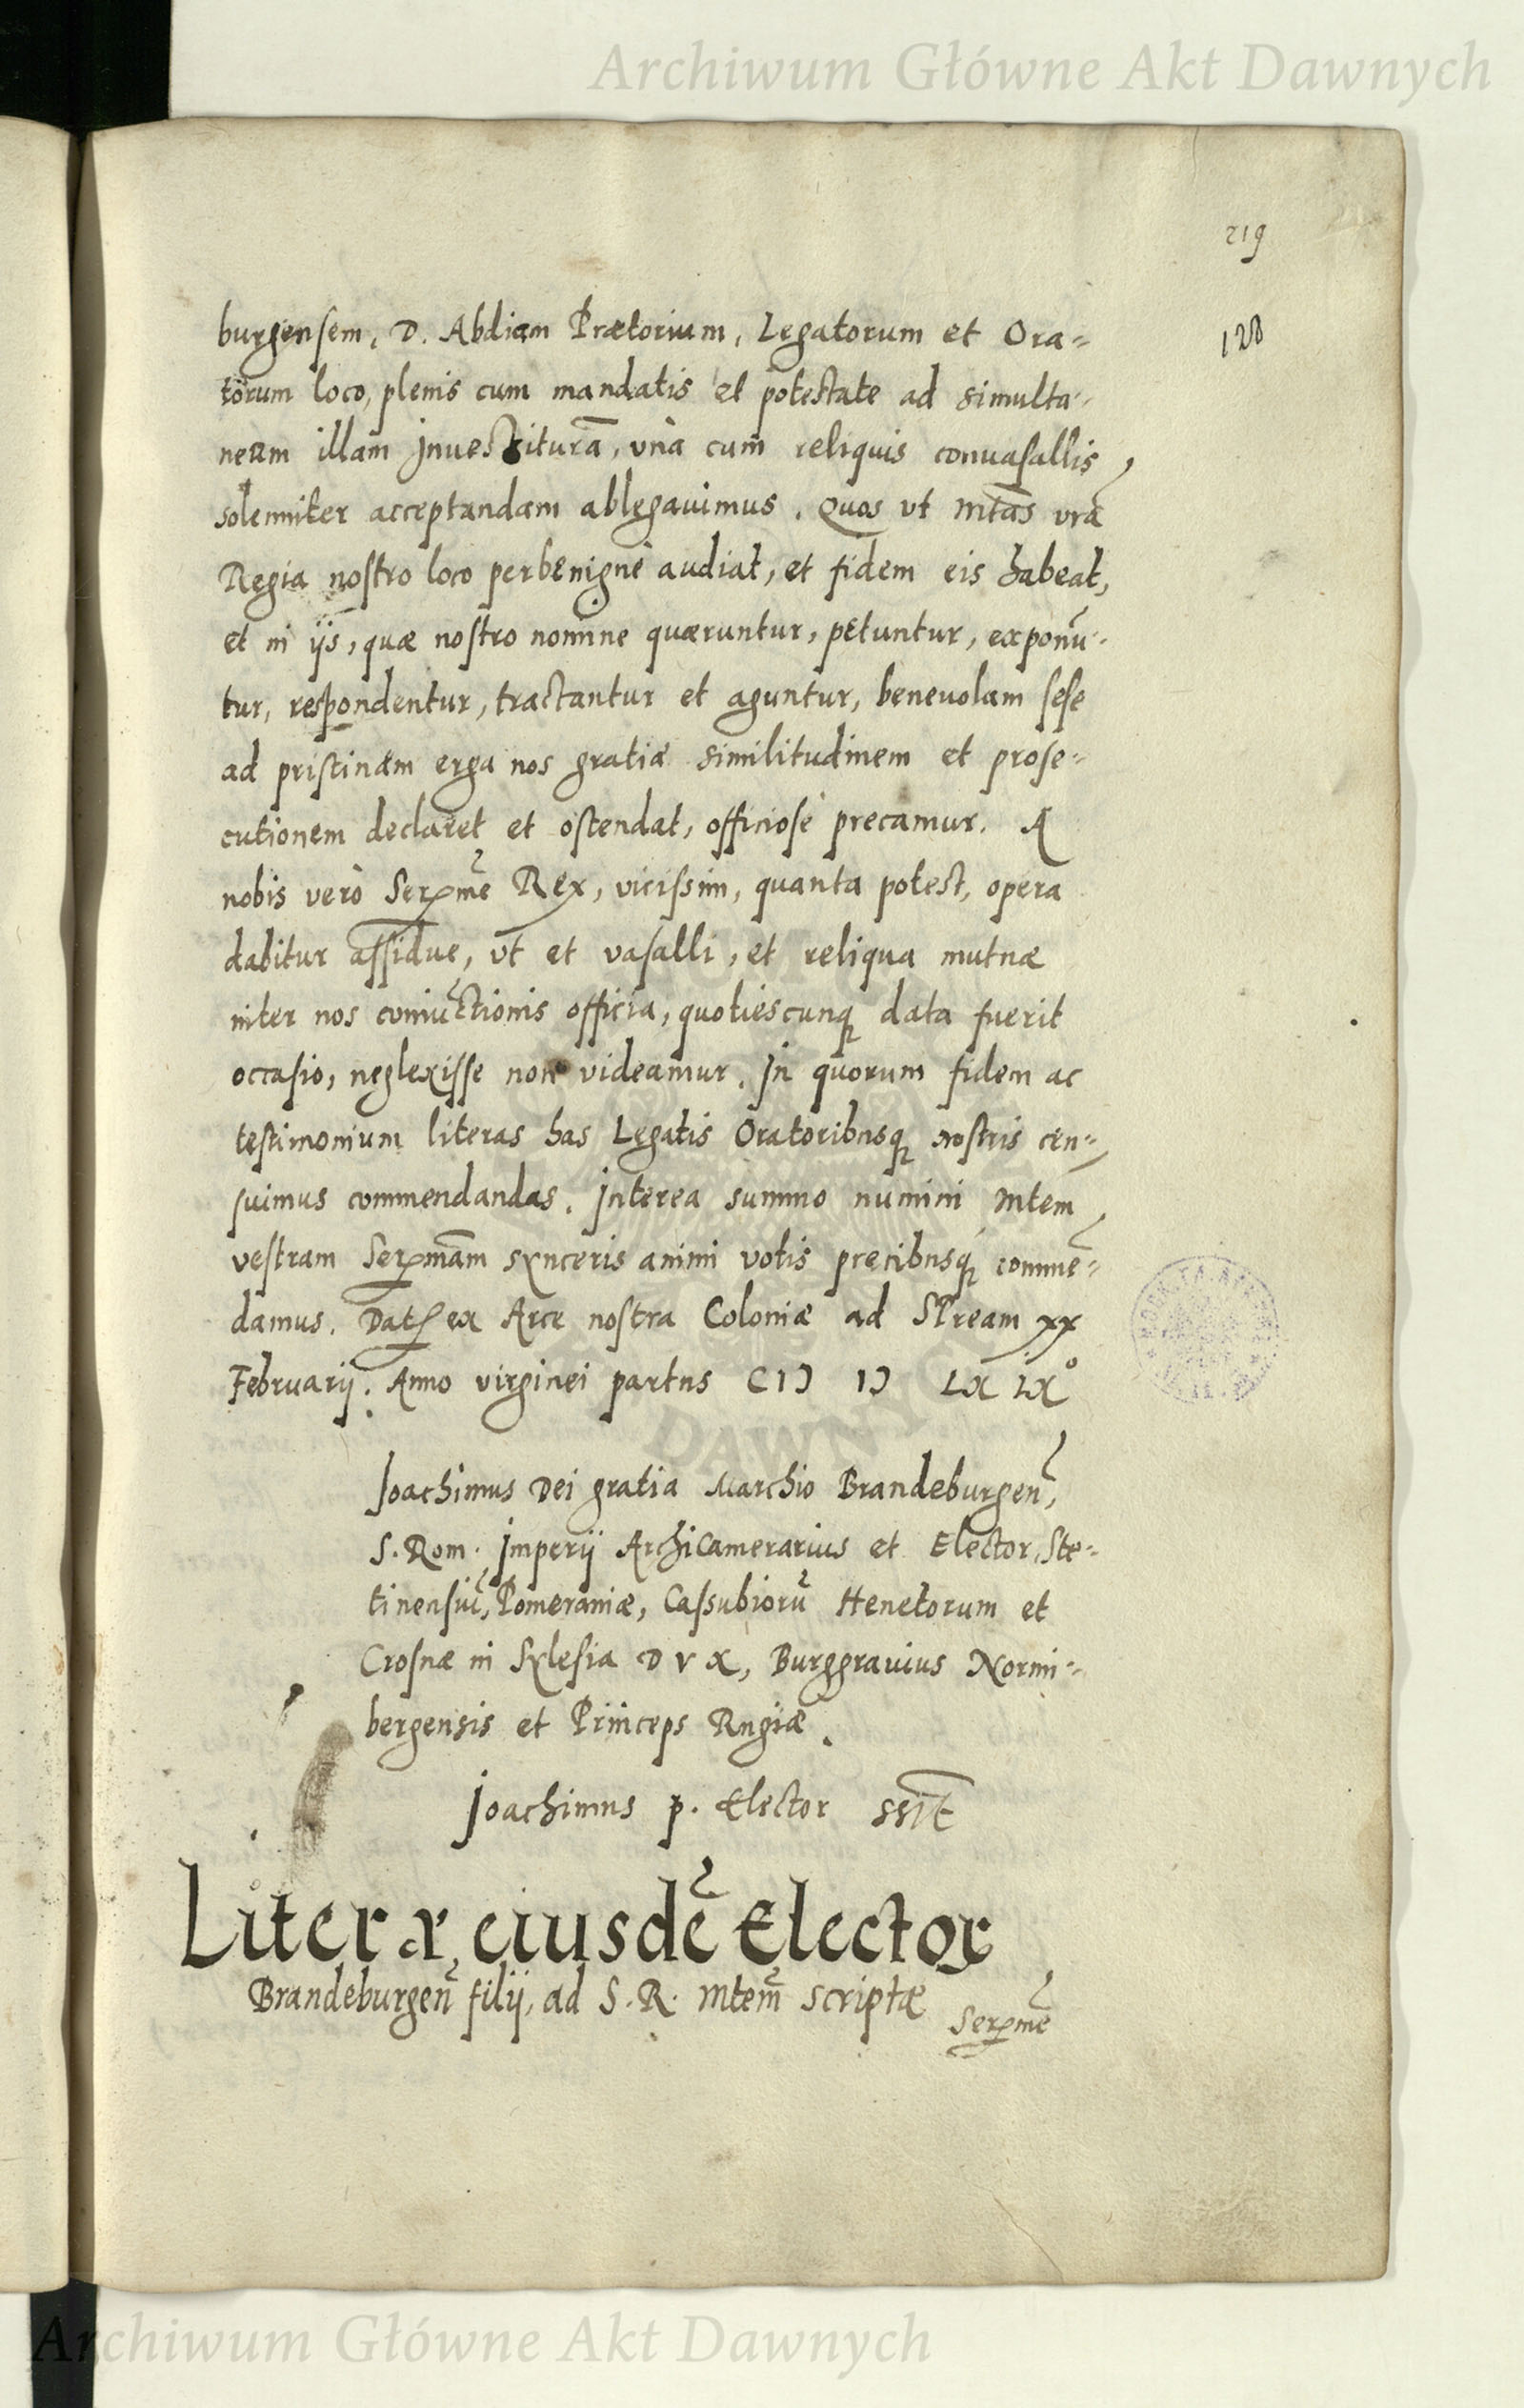 Archiwum Główne Akt Dawnych
219
128
burgensem, D. Abdiam Prætorium, Legatorum et Ora=
torum loco, plenis cum mandatis et potestate ad simulta=
neam illam Inuestiturã, vnà cum reliquis conuasallis
solenniter acceptandam ablegauimus. Quos vt Mtas vrã
Regia nostro loco perbenignè audiat, et fidem eis habeat,
et in ijs, quæ nostro nomine quæruntur, petuntur, exponũ=
tur, respondentur, tractantur et aguntur, beneuolam sese
ad pristinam erga nos gratiæ similitudinem et prose=
cutionem declaret et ostendat, officiosè precamur. A
nobis verò Serꝑme Rex, vicissim, quanta potest, opera
dabitur assidue, vt et vasalli, et reliqua mutuæ
inter nos coniũctionis officia, quotiescunq data fuerit
occasio, neglexisse non videamur. In quorum fidem ac
testimonium literas has Legatis Oratoribusq nostris cen=
suimus commendandas. Interea summo numini Mtem
vestram Serꝑmam synceris animi votis precibusq commẽ=
damus. Dat ex Arce nostra Coloniæ ad SPream xx
Februarij. Anno virginei partus CIƆ IƆ LX IXº
Joachimus Dei gratia Marchio Brandeburgen,
S. Rom. Imperij Archicamerarius et Elector, Ste=
tinensiũ, Pomeraniæ, Cassubiorũ Henetorum et
Crosnæ in Sylesia DVX, Burggrauius Norim=
bergensis et Princeps Rugiæ.
Joachimus p. Elector sst
Literæ eiusdẽ Elector
Brandeburgen filij, ad S. R. Mtem scriptæ
Serꝑme
DAWNYCH
Archiwum Główne Akt Dawnych